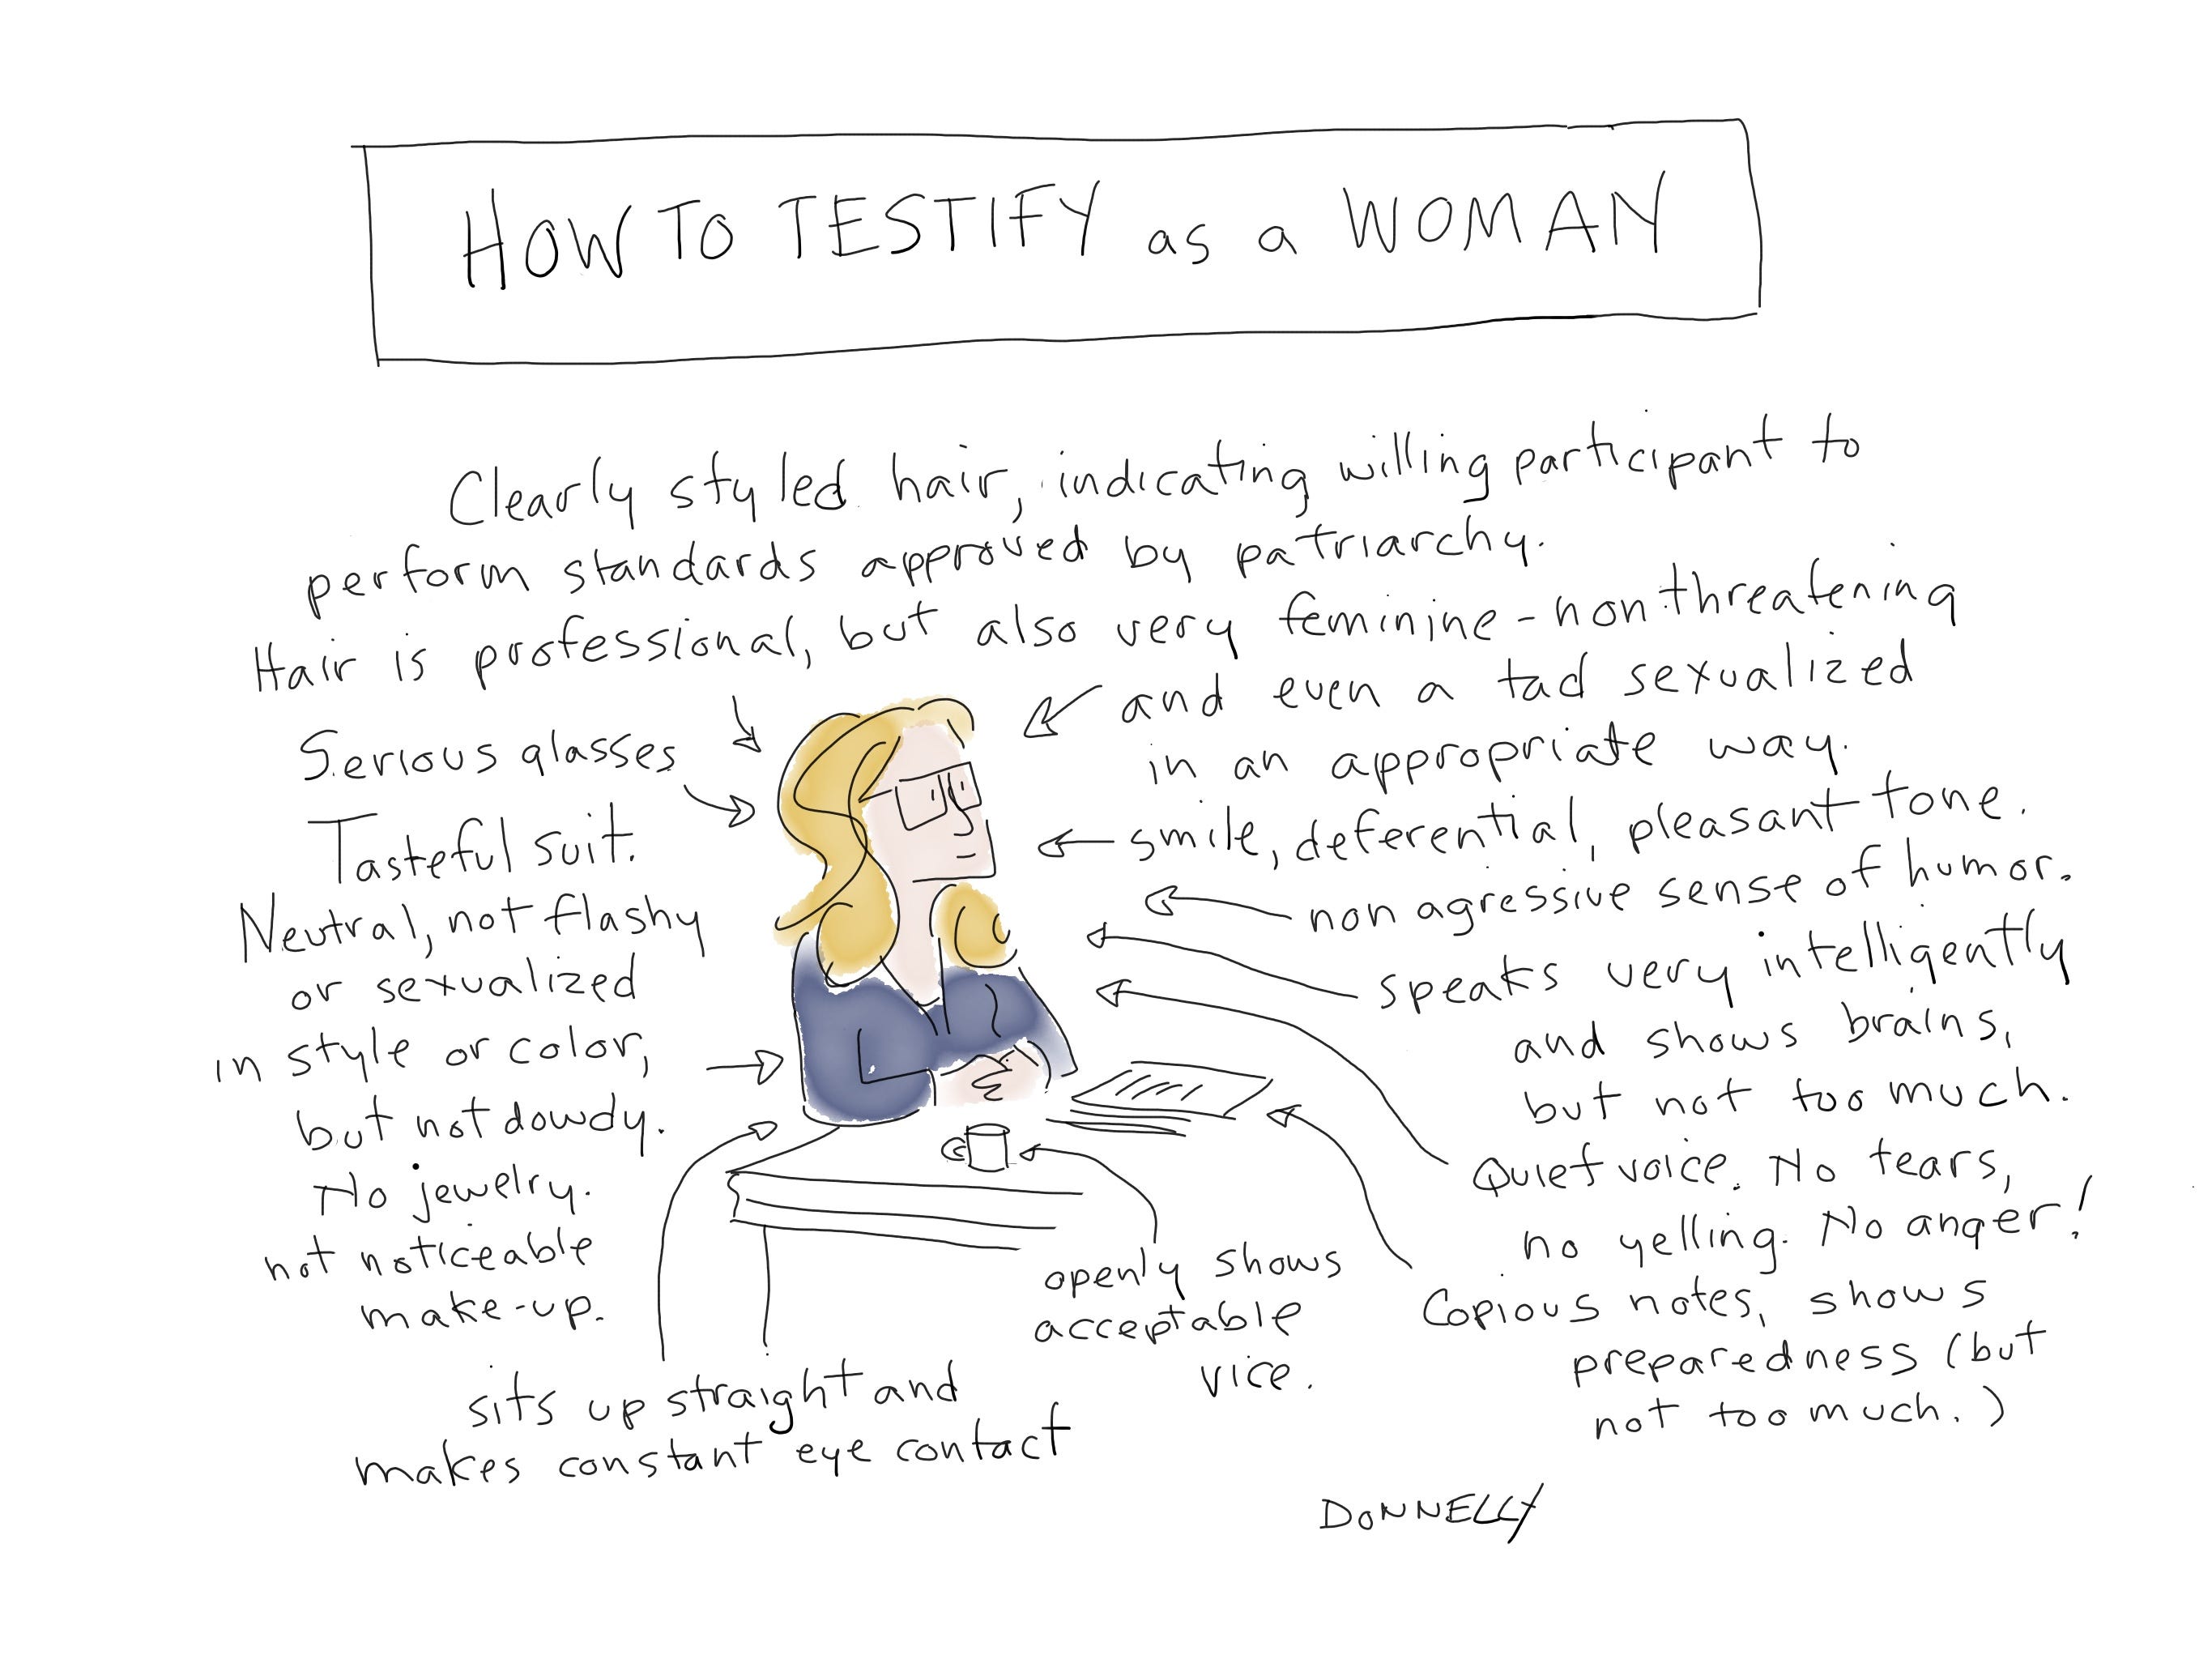 HOW TO TESTIFY as a WOMAN
Clearly styled hair, indicating willing participant to
perform standards approved by patriarchy.
Hair is professional, but also very feminine - nonthreatening
and even a tad sexualized
in an appropriate way.
Serious glasses
Tasteful suit.
Neutral, not flashy
or sexualized
in style or color,
but not dowdy.
No jewelry.
not noticeable
make-up.
sits up straight and
makes constant eye contact
smile, deferential, pleasant tone.
non agressive sense of humor.
speaks very intelligently
and shows brains,
but not too much.
Quiet voice. No tears,
no yelling. No anger!
Copious notes, shows
preparedness (but
not too much.)
openly shows
acceptable
vice.
DONNELLY